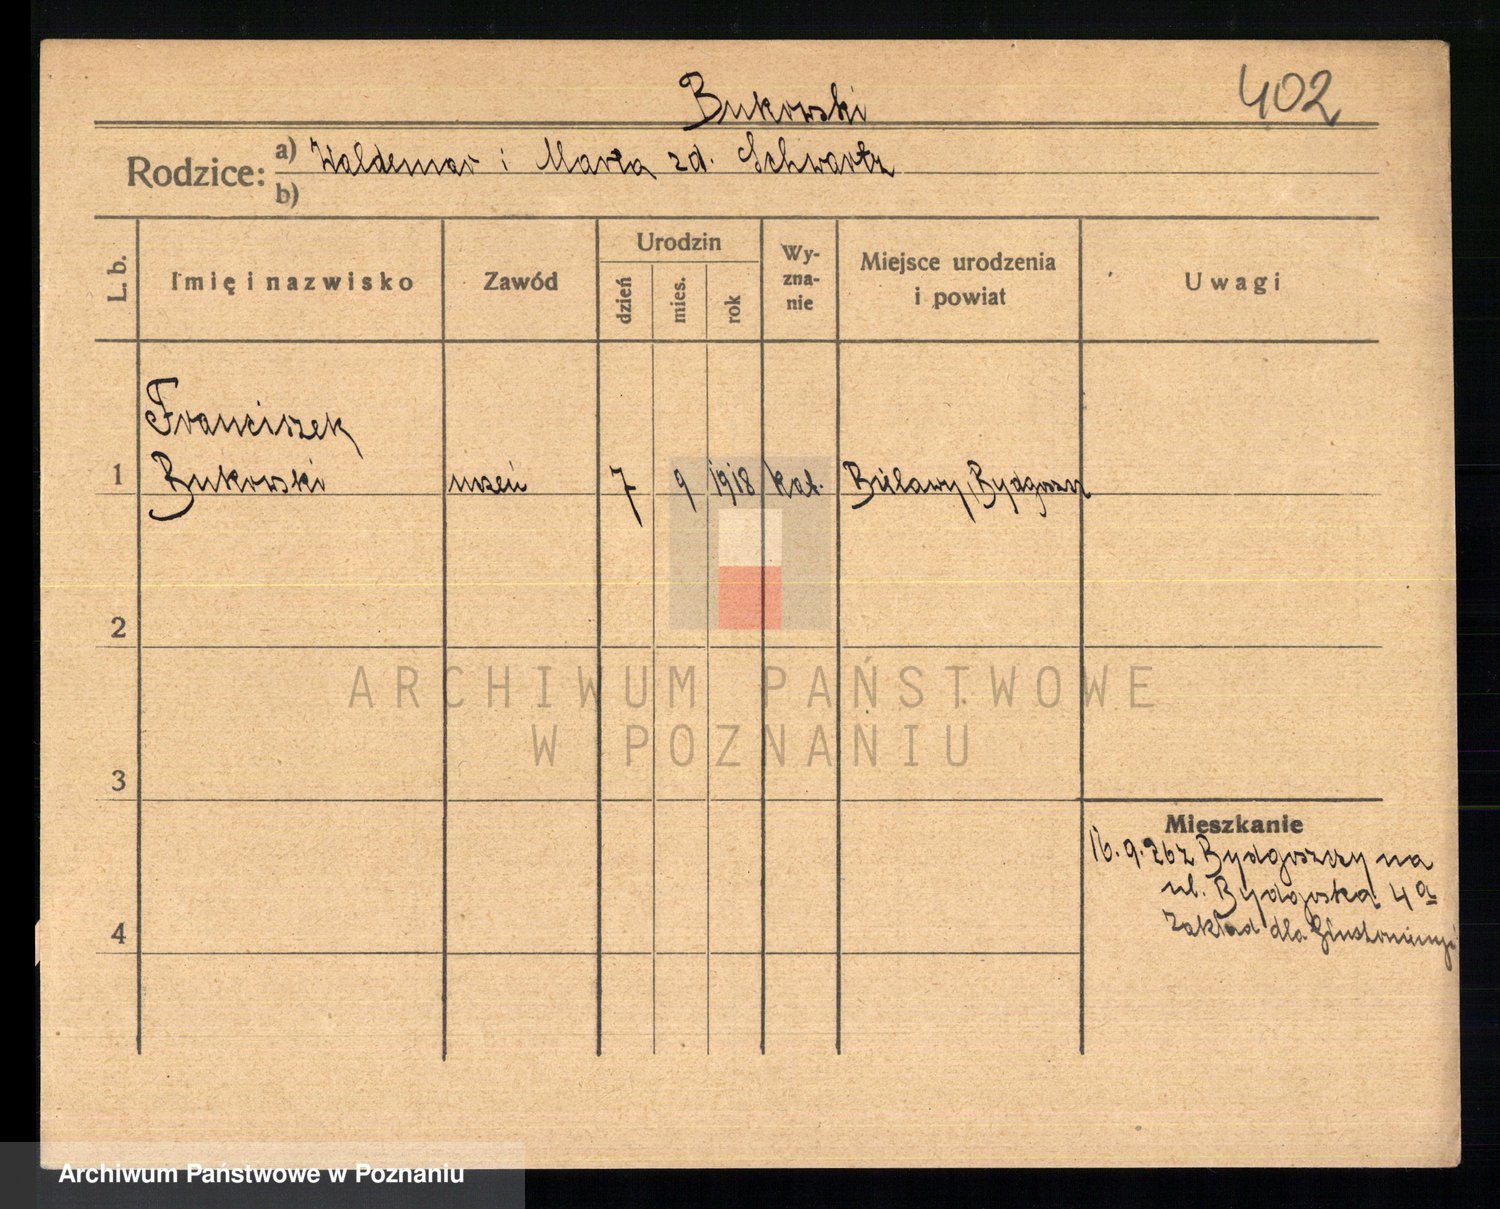 Bukowski
402
Rodzice: a) Waldemar i Marta zd. Schwartz
b)
L. b.
Imię i nazwisko
Zawód
Urodzin
dzień
mies.
rok
Wy-
zna-
nie
Miejsce urodzenia
i powiat
Uwagi
Franciszek
1 Bukowski uczeń 7 9 1918 kat. Bielawy, Bydgoszcz
2
ARCHIWUM PAŃSTWOWE
W POZNANIU
3
Mieszkanie
16.9.26 z Bydgoszczy na
ul. Bydgoska 4a
Zakład dla Głuchoniemych
4
Archiwum Państwowe w Poznaniu